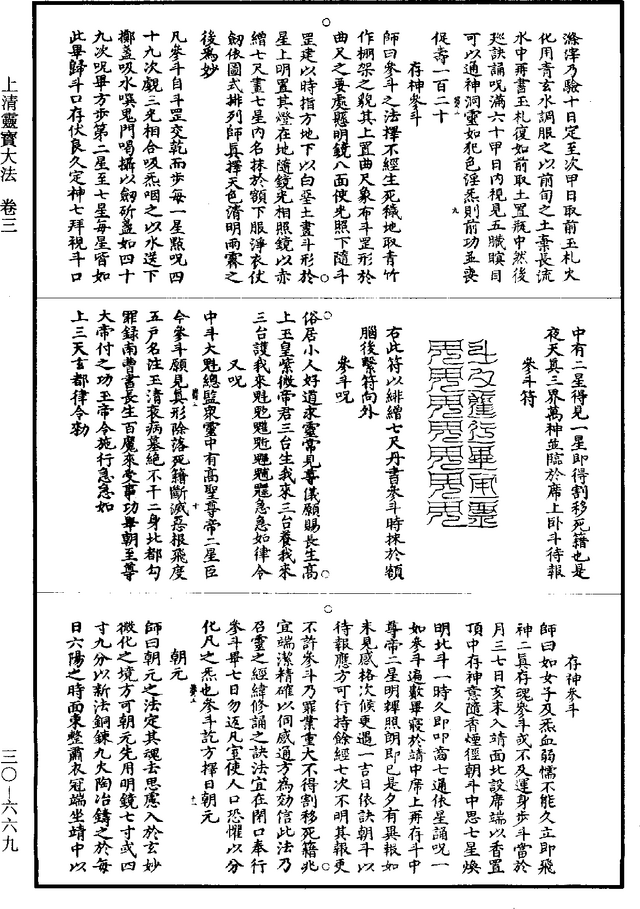 上清靈寶大法 卷三
三〇—六六九
滌滓乃驗十日定至次甲日取前玉札火
化用青玄水調服之以前旬之土棄長流
水中再書玉札復如前取土置瓶中然後
廵訣誦呪滿六十甲日內視見五臟瞑目
可以通神洞靈如犯色淫炁則前功並喪
促壽一百二十
存神參斗
師曰參斗之法擇不經生死穢地取青竹
作棚架之貌其上置曲尺象布斗罡形於
曲尺之要處懸明鏡八面使光照下隨斗
罡建以時指方地下以白堊土畫斗形於
星上明置其燈在地隨鏡光相照鏡以赤
繒七尺畫七星內名抹於額下服淨衣仗
劒依圖式排列師真擇天色清明雨霽之
後爲妙
凡參斗自斗罡交乾而步每一星㸃呪四
十九次觀三光相合吸炁咽之以水送下
擲盞吸水噀鬼門喝攝以劒斫盞如四十
九次呪畢方步第二星至七星每星皆如
此畢歸斗口存伏良久定神七拜視斗口
中有二星得見一星即得割移死籍也是
夜天真三界萬神並臨於席上卧斗待報
參斗符
右此符以緋繒七尺丹書參斗時抹於額
腦後繫符向外
參斗呪
俗居小人好道求靈常見尊儀願賜長生高
上玉皇紫微帝君三台生我來三台養我來
三台護我來魁𩲃䰢魓魒急急如律令
又呪
中斗大魁總監衆靈中有高聖尊帝二星臣
今參斗願見真形除落死籍斷滅惡根飛度
五戶名注玉清衰病墓絶不干二身北都勾
罪録南曹書長生百魔來受事功畢朝至尊
大帝付之功玉帝令施行急急如
上三天玄都律令勑
存神參斗
師曰如女子及炁血弱懦不能久立即飛
神二真存現參斗或不及運身步斗當於
月三七日亥末入靖面北設席端以香置
頂中存神意隨香煙徑朝斗中思七星煥
明北斗一時久即叩齒七通依星誦呪一
如參斗遍數畢寢於靖中席上再存斗中
尊帝二星明輝照朗即已是夕有異報如
未見感格次候更遇一吉日依訣朝斗以
待報應方可行持餘經七次不明其報更
不許參斗乃罪業重大不得割移死籍兆
宜端潔精確以伺感通方爲効信此法乃
召靈之經緯修誦之訣法宜在閉口奉行
參斗畢七日勿返凡宜使人口恐懼以分
化凡之炁也參斗訖方擇日朝元
朝元
師曰朝元之法定其魂去思慮入於玄妙
微化之境方可朝元先用明鏡七寸或四
寸九分以新法銅鍊九火陶冶鑄之於每
日六陽之時面東整肅衣冠端坐靖中以